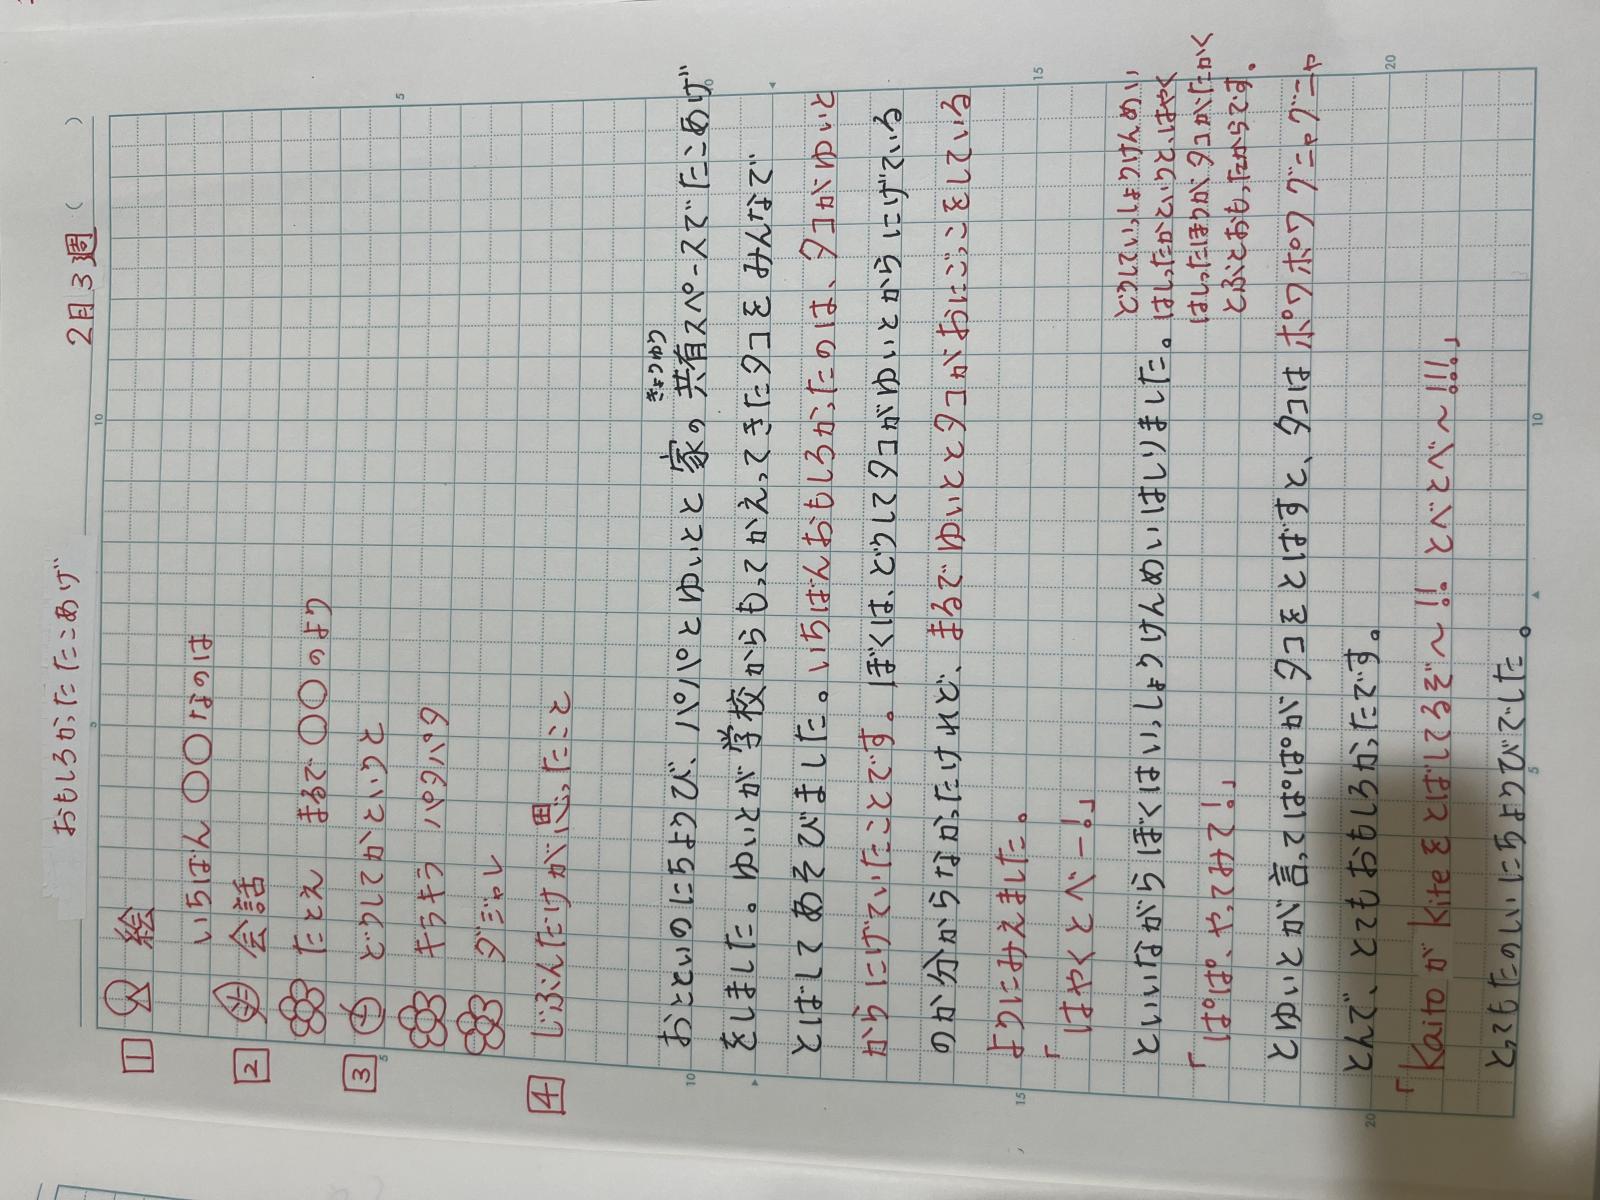 2月3週 (  )
おもしろかった たこあげ
1 絵
いちばん 〇〇なのは
2 会話
たとえ まるで 〇〇のよう
3 どうしてかというと
キラキラ パパらら
グジャし
4 じぶんだけが思ったこと
おとといのにちようび、パパとゆいとと 家の共有スペースでたこあげ
をしました。ゆいとが学校からもってかえってきたタコを みんなで
とばして あそびました。いちばんおもしろかったのは、タコがゆいと
からにげていたことです。ぼくは、どうしてタコがゆいとからにげている
のか分からなかったけれど、まるでゆいととタコがおにごっこをしている
ようにみえました。
「はやくとべー!」
といいながらぼくはいっしょうけんめいはしりました。
どうしていっしょうけんめい
はしったかというと、はやく
はしったほうが、タコがたかく
とぶとおもったからです。
「ぱぱ、やってみて!」
とゆいとが言って、ぱぱがタコをとばすと、タコはポムポムグニグニャ
とんで、とてもおもしろかったです。
「KaitoがKiteをとばしてるぞ〜!! とべとべ〜!!!」
とってもたのしいにちようびでした。
5
10
15
20